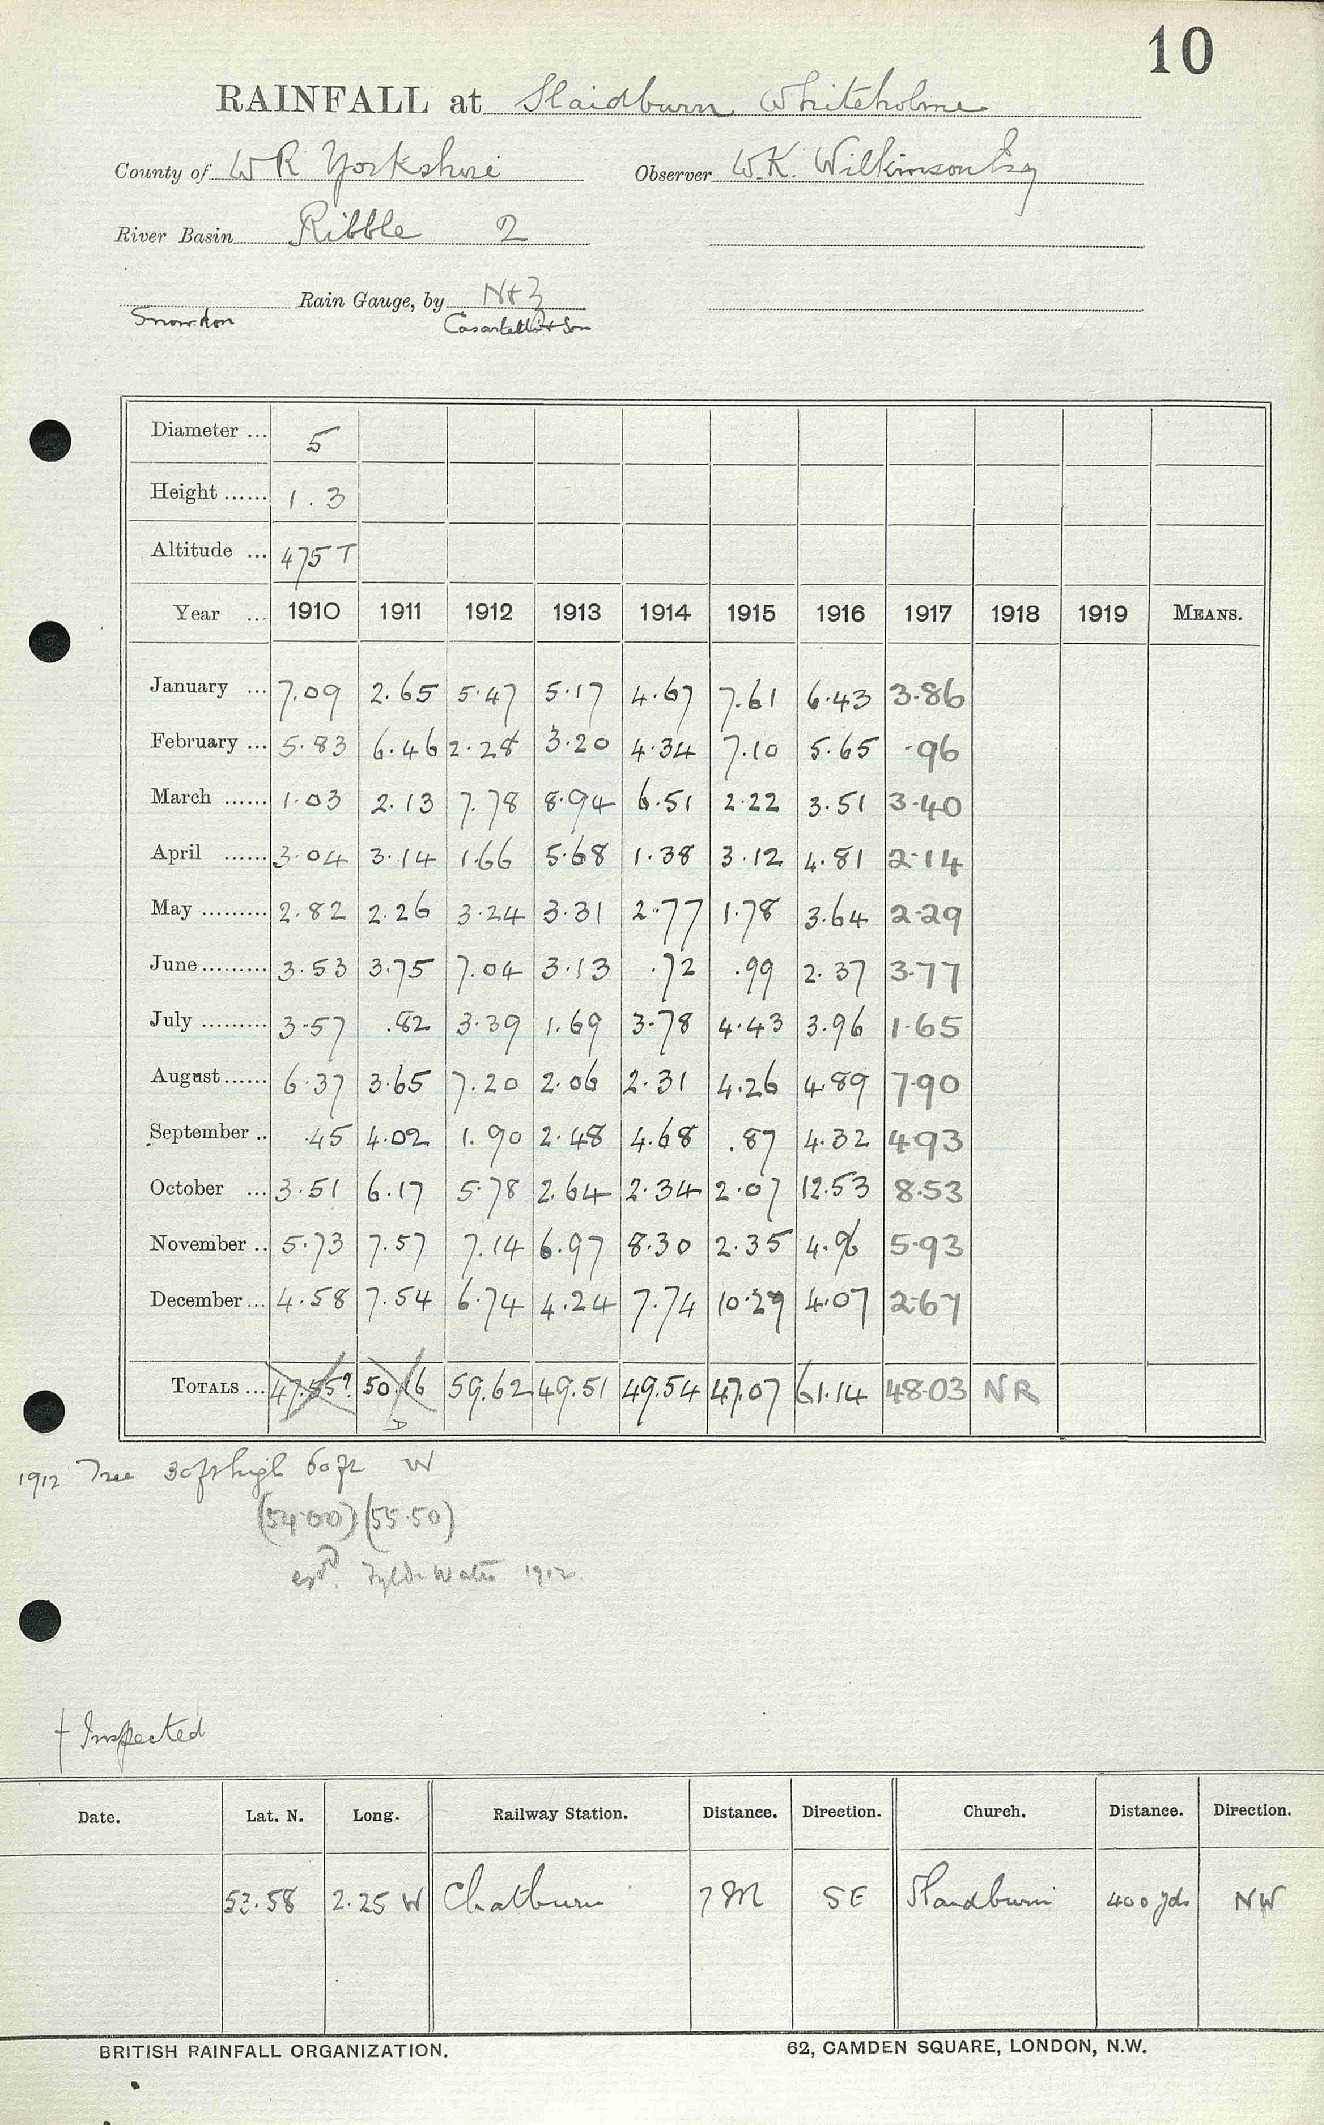 10
RAINFALL at Slaidburn Whiteholme
County of W R Yorkshire Observer W.K. Wilkinson Esq
River Basin Ribble 2
Rain Gauge, by N&Z
Snowdon Casartelli & Son
Diameter ... 5
Height ...... 1.3
Altitude ... 475 T
Year ... 1910 1911 1912 1913 1914 1915 1916 1917 1918 1919 MEANS.
January ... 7.09 2.65 5.47 5.17 4.67 7.61 6.43 3.86
February ... 5.83 6.46 2.28 3.20 4.34 7.10 5.65 .96
March ...... 1.03 2.13 7.78 8.94 6.51 2.22 3.51 3.40
April ...... 3.04 3.14 1.66 5.68 1.38 3.12 4.81 2.14
May ......... 2.82 2.26 3.24 3.31 2.77 1.78 3.64 2.29
June ......... 3.53 3.75 7.04 3.13 .72 .99 2.37 3.77
July ......... 3.57 .82 3.39 1.69 3.78 4.43 3.96 1.65
August ...... 6.37 3.65 7.20 2.06 2.31 4.26 4.89 7.90
September .. .45 4.02 1.90 2.48 4.68 .87 4.32 4.93
October ... 3.51 6.17 5.78 2.64 2.34 2.07 12.53 8.53
November .. 5.73 7.57 7.14 6.97 8.30 2.35 4.96 5.93
December ... 4.58 7.54 6.74 4.24 7.74 10.29 4.07 2.67
TOTALS ... 47.55? 50.16 59.62 49.51 49.54 47.07 61.14 48.03 NR
D
1912 Tree 30ft high 60ft W
(54.00) (55.50)
estd. Fylde Water 1912
† Inspected
Date. Lat. N. Long. Railway Station. Distance. Direction. Church. Distance. Direction.
53.58 2.25 W Chatburn 7 M SE Slaidburn 400 yds NW
BRITISH RAINFALL ORGANIZATION. 62, CAMDEN SQUARE, LONDON, N.W.